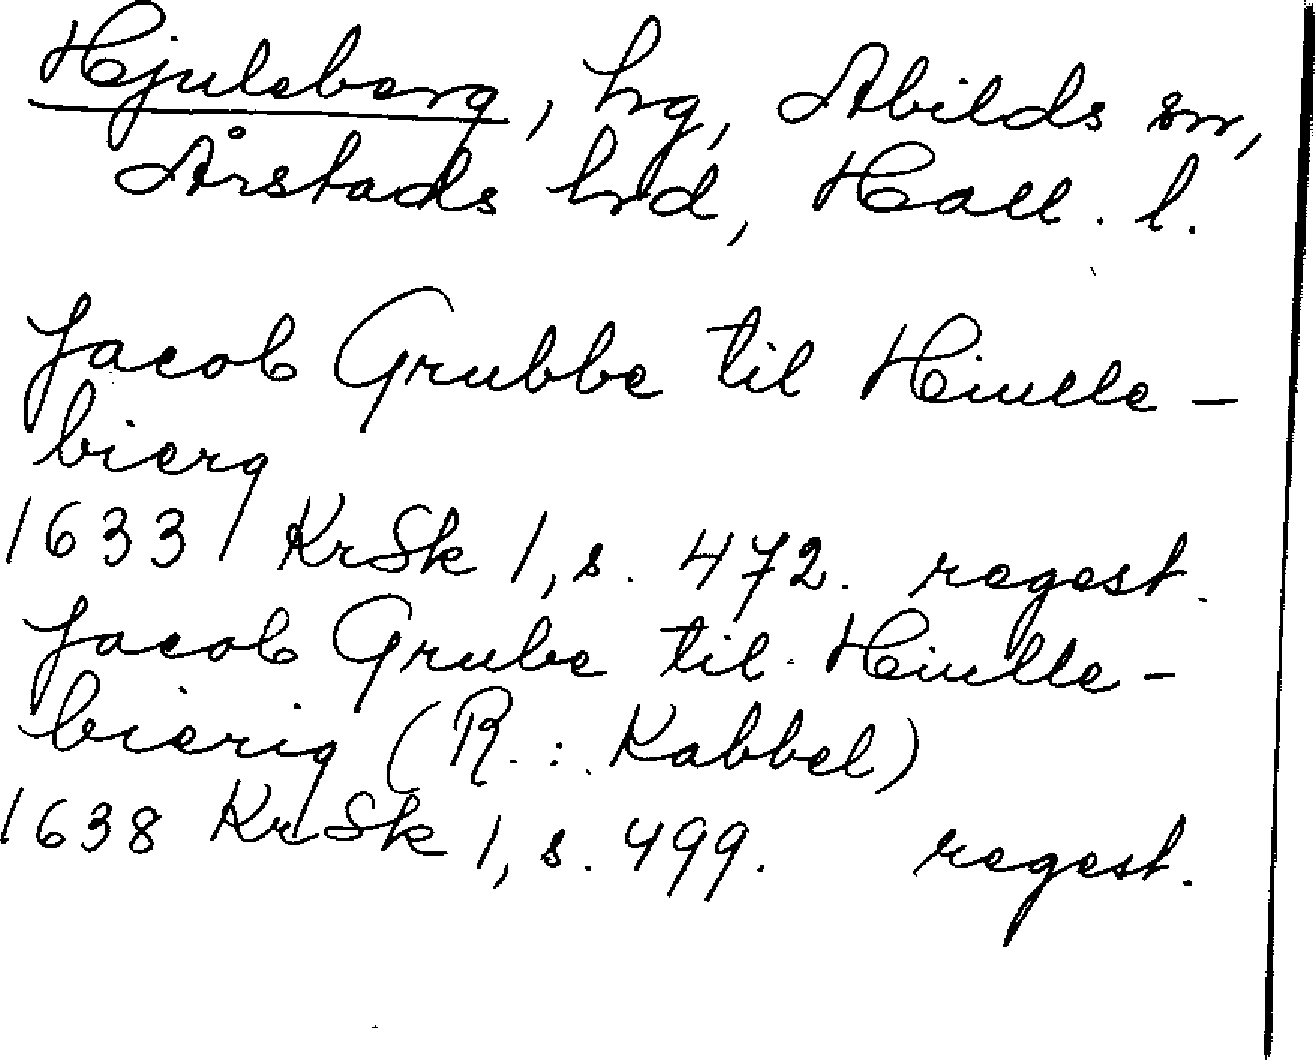 Hjuleberg, hg, Abilds sn,
Årstads hrd, Hall. l.
Jacob Grubbe til Hiulle-
bierg
1633 KrSk 1, s. 472. regest.
Jacob Grube til Hiulle-
bierig (R.: Kabbel)
1638 KrSk 1, s. 499. regest.